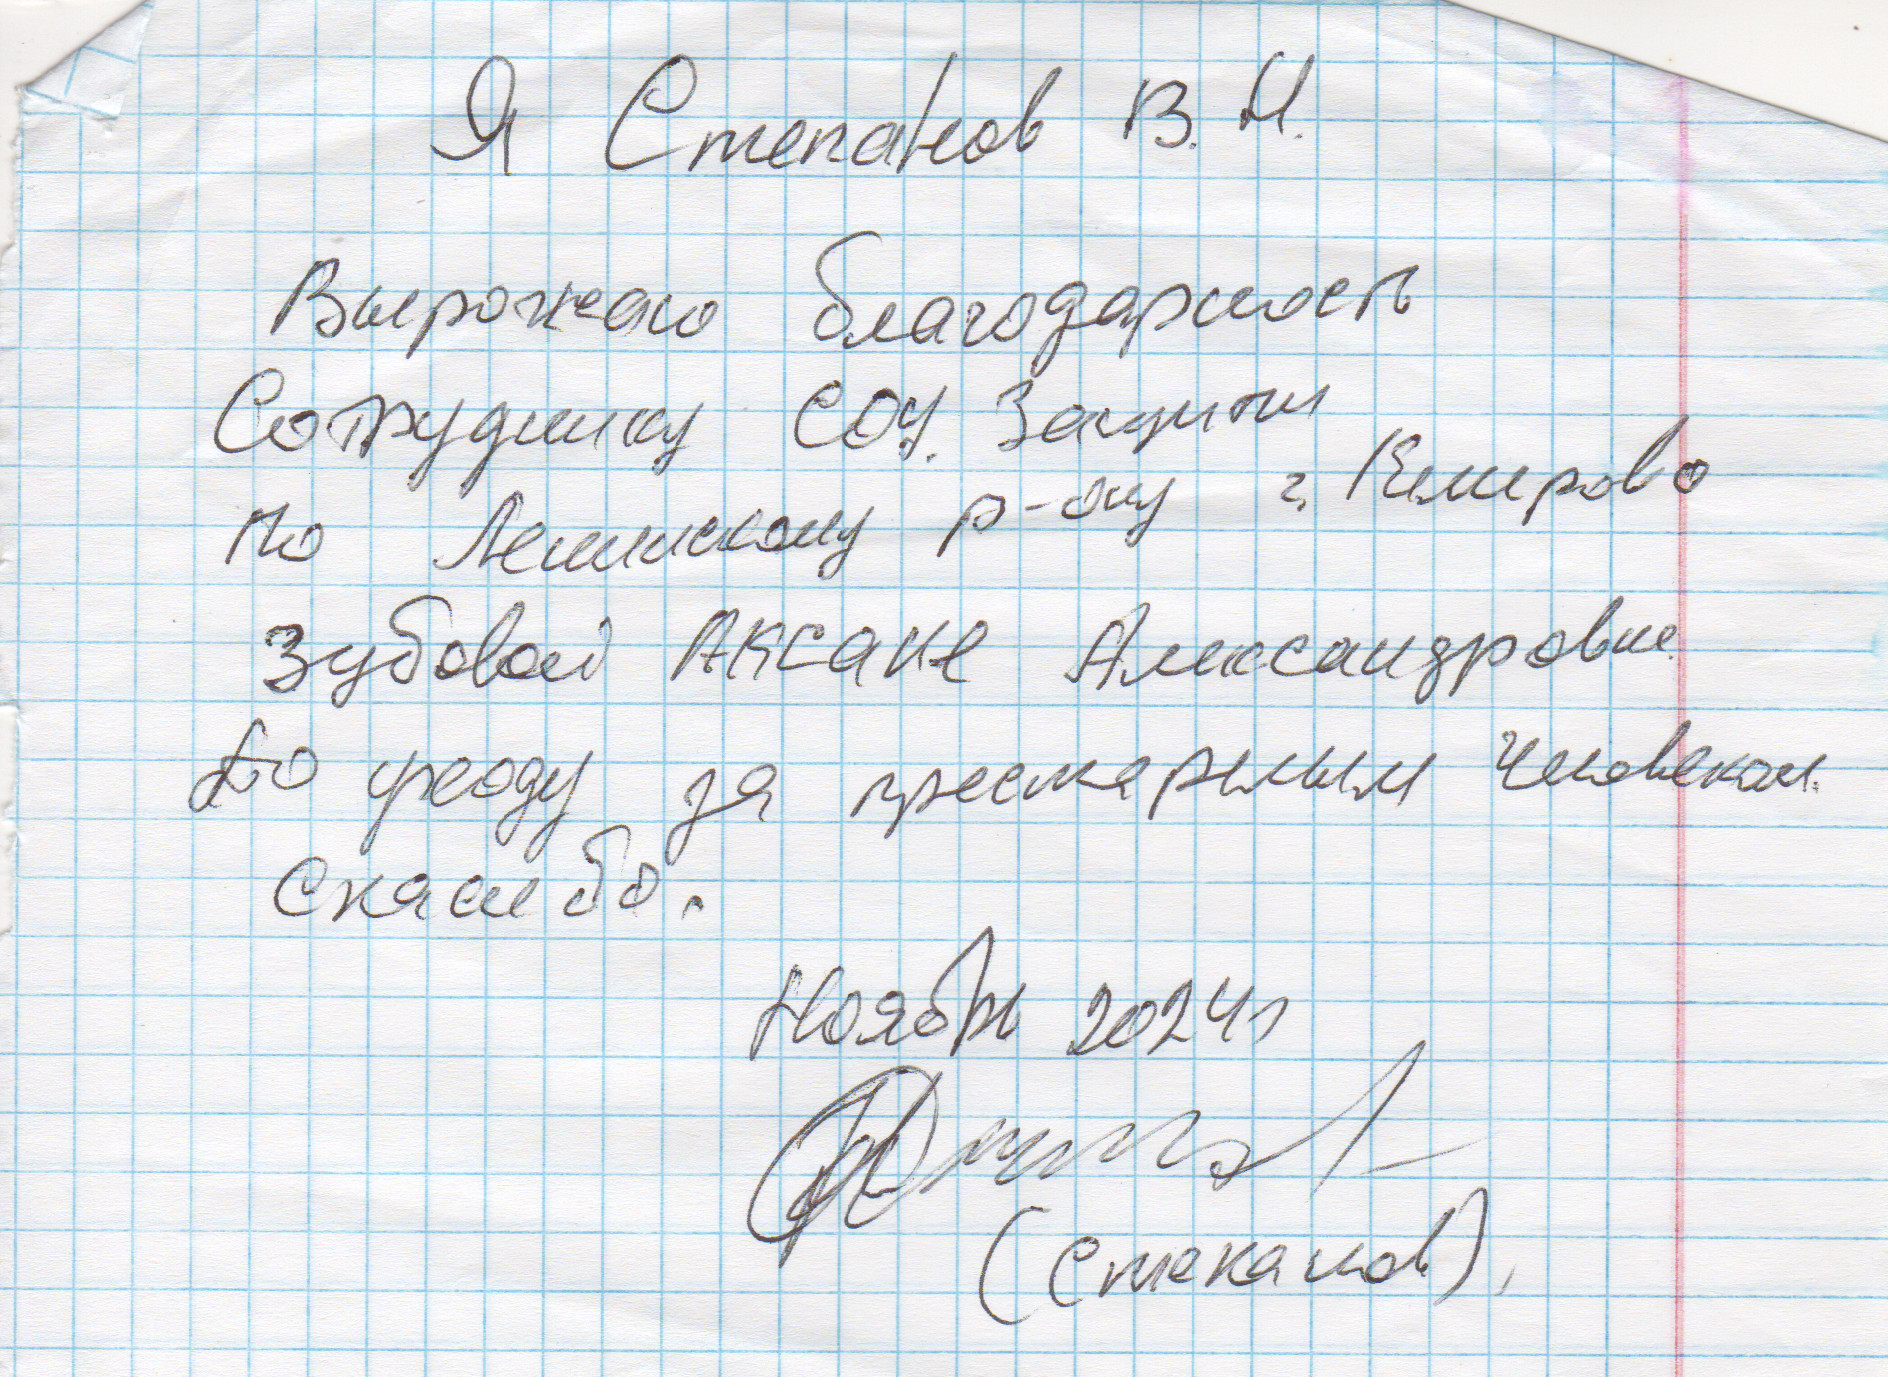 Я Степанов В. Н.
Вырожаю благодарность
Сотруднику СОЦ. Защиты
по Ленинскому р-ону г. Кемерово
Зубовой Аксане Александровне
по уходу за престарелым человеком.
Спасибо.
Ноябрь 2024г
(Степанов).